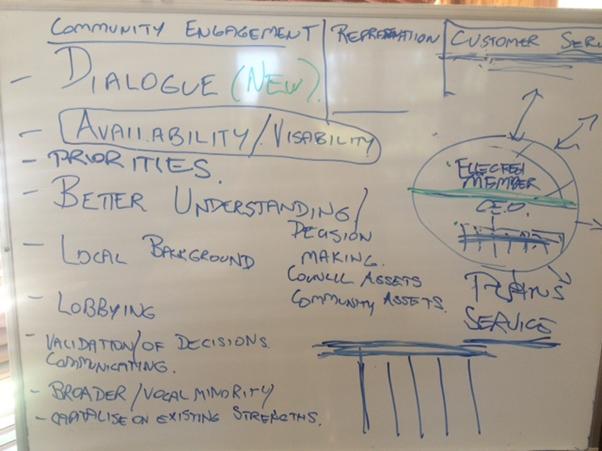 COMMUNITY ENGAGEMENT
REPRESENTATION
CUSTOMER SERV
- DIALOGUE (NEW).
- AVAILABILITY/VISABILITY
- PRIORITIES.
- BETTER UNDERSTANDING/
DECISION
MAKING.
COUNCIL ASSETS
COMMUNITY ASSETS.
- LOCAL BACKGROUND
- LOBBYING
- VALIDATION/OF DECISIONS
COMMUNICATING.
- BROADER/VOCAL MINORITY/
- CAPITALISE ON EXISTING STRENGTHS.
ELECTED
MEMBER
C.E.O.
SERVICE